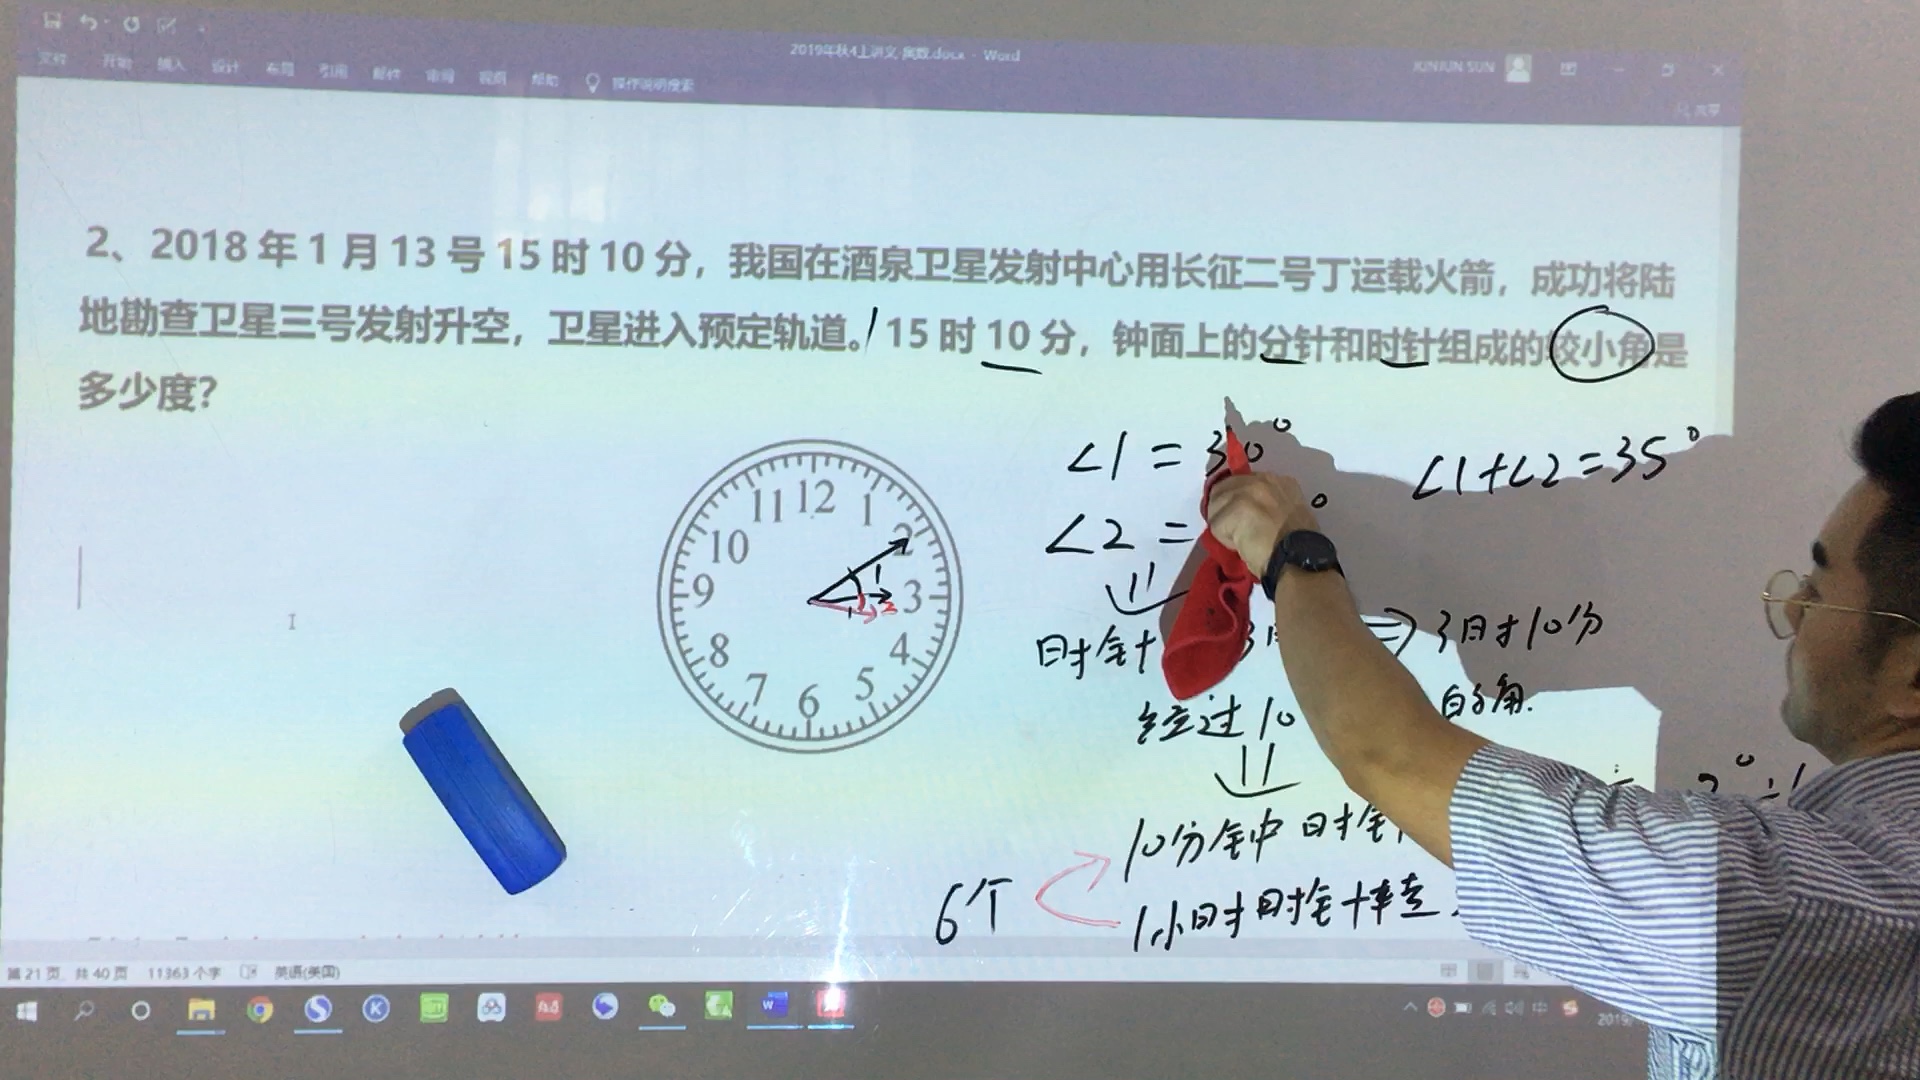 2019年秋4上讲义-奥数.docx - Word
JUNJUN SUN
文件 开始 插入 设计 布局 引用 邮件 审阅 视图 帮助 操作说明搜索
共享
2、2018年1月13号15时10分，我国在酒泉卫星发射中心用长征二号丁运载火箭，成功将陆
地勘查卫星三号发射升空，卫星进入预定轨道。15时10分，钟面上的分针和时针组成的较小角是
多少度？
12
11 1
10 2
9 3
8 4
7 5
6
1
2
∠1=30°
∠1+∠2=35°
∠2=
时针
3时10分
的角.
经过10
10分钟时针
6个
1小时时针转走
第21页，共40页 11363个字 英语(美国)
中
2019/